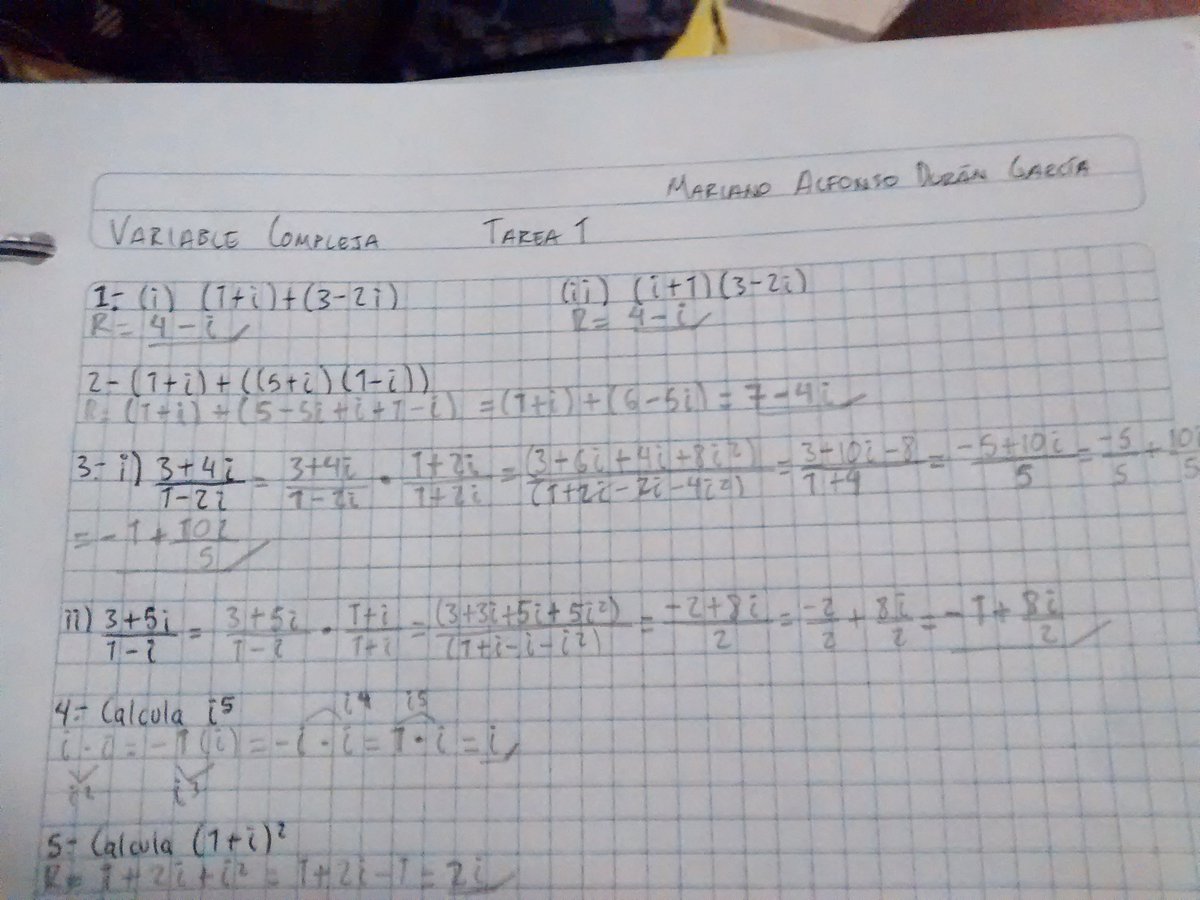 MARIANO ALFONSO DURÁN GARCÍA
VARIABLE COMPLEJA TAREA 1
1.- (i) (1+i)+(3-2i) (ii) (i+1)(3-2i)
R= 4-i R= 4-i
2-(1+i)+((5+i)(1-i))
R=(1+i)+(5-5i+i+1-i) =(1+i)+(6-5i)= 7-4i
3.- i) \frac{3+4i}{1-2i} = \frac{3+4i}{1-2i} · \frac{1+2i}{1+2i} = \frac{(3+6i+4i+8i²)}{(1+2i-2i-4i²)} = \frac{3+10i-8}{1+4} = \frac{-5+10i}{5} = \frac{-5}{5} + \frac{10i}{5}
= -1 + \frac{10i}{5}
ii) \frac{3+5i}{1-i} = \frac{3+5i}{1-i} · \frac{1+i}{1+i} = \frac{(3+3i+5i+5i²)}{(1+i-i-i²)} = \frac{-2+8i}{2} = \frac{-2}{2} + \frac{8i}{2} = -1 + \frac{8i}{2}
4.- Calcula i⁵ i⁴ i⁵
i·i = -1(i) = -i·i = 1·i = i
i² i³
5- Calcula (1+i)²
R= 1+2i+i² = 1+2i-1 = 2i